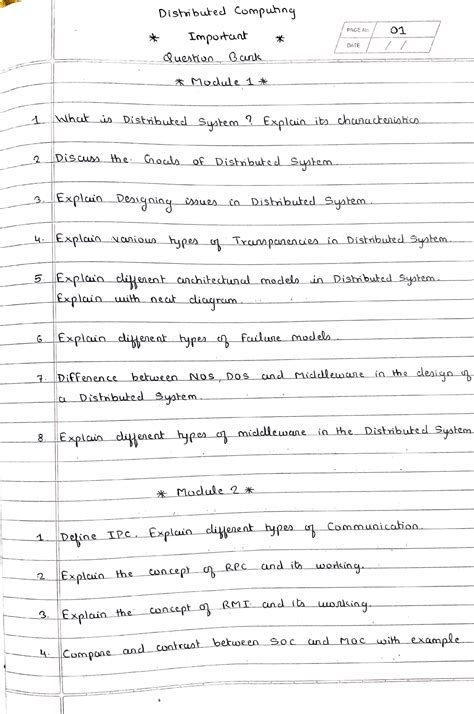 Distributed Computing
* Important *
PAGE No. 01
DATE / /
Question Bank
* Module 1 *
1. What is Distributed System? Explain its characteristics
2 Discuss the Goals of Distributed System.
3. Explain Designing issues in Distributed System.
4. Explain various types of Transparencies in Distributed System.
5. Explain different architectural models in Distributed System.
Explain with neat diagram.
6 Explain different types of Failure models.
7. Difference between NOS, DOS and Middleware in the design of
a Distributed System.
8. Explain different types of middleware in the Distributed System
* Module 2 *
1. Define IPC. Explain different types of Communication.
2 Explain the concept of RPC and its working.
3. Explain the concept of RMI and its working.
4. Compare and contrast between SOC and MOC with example